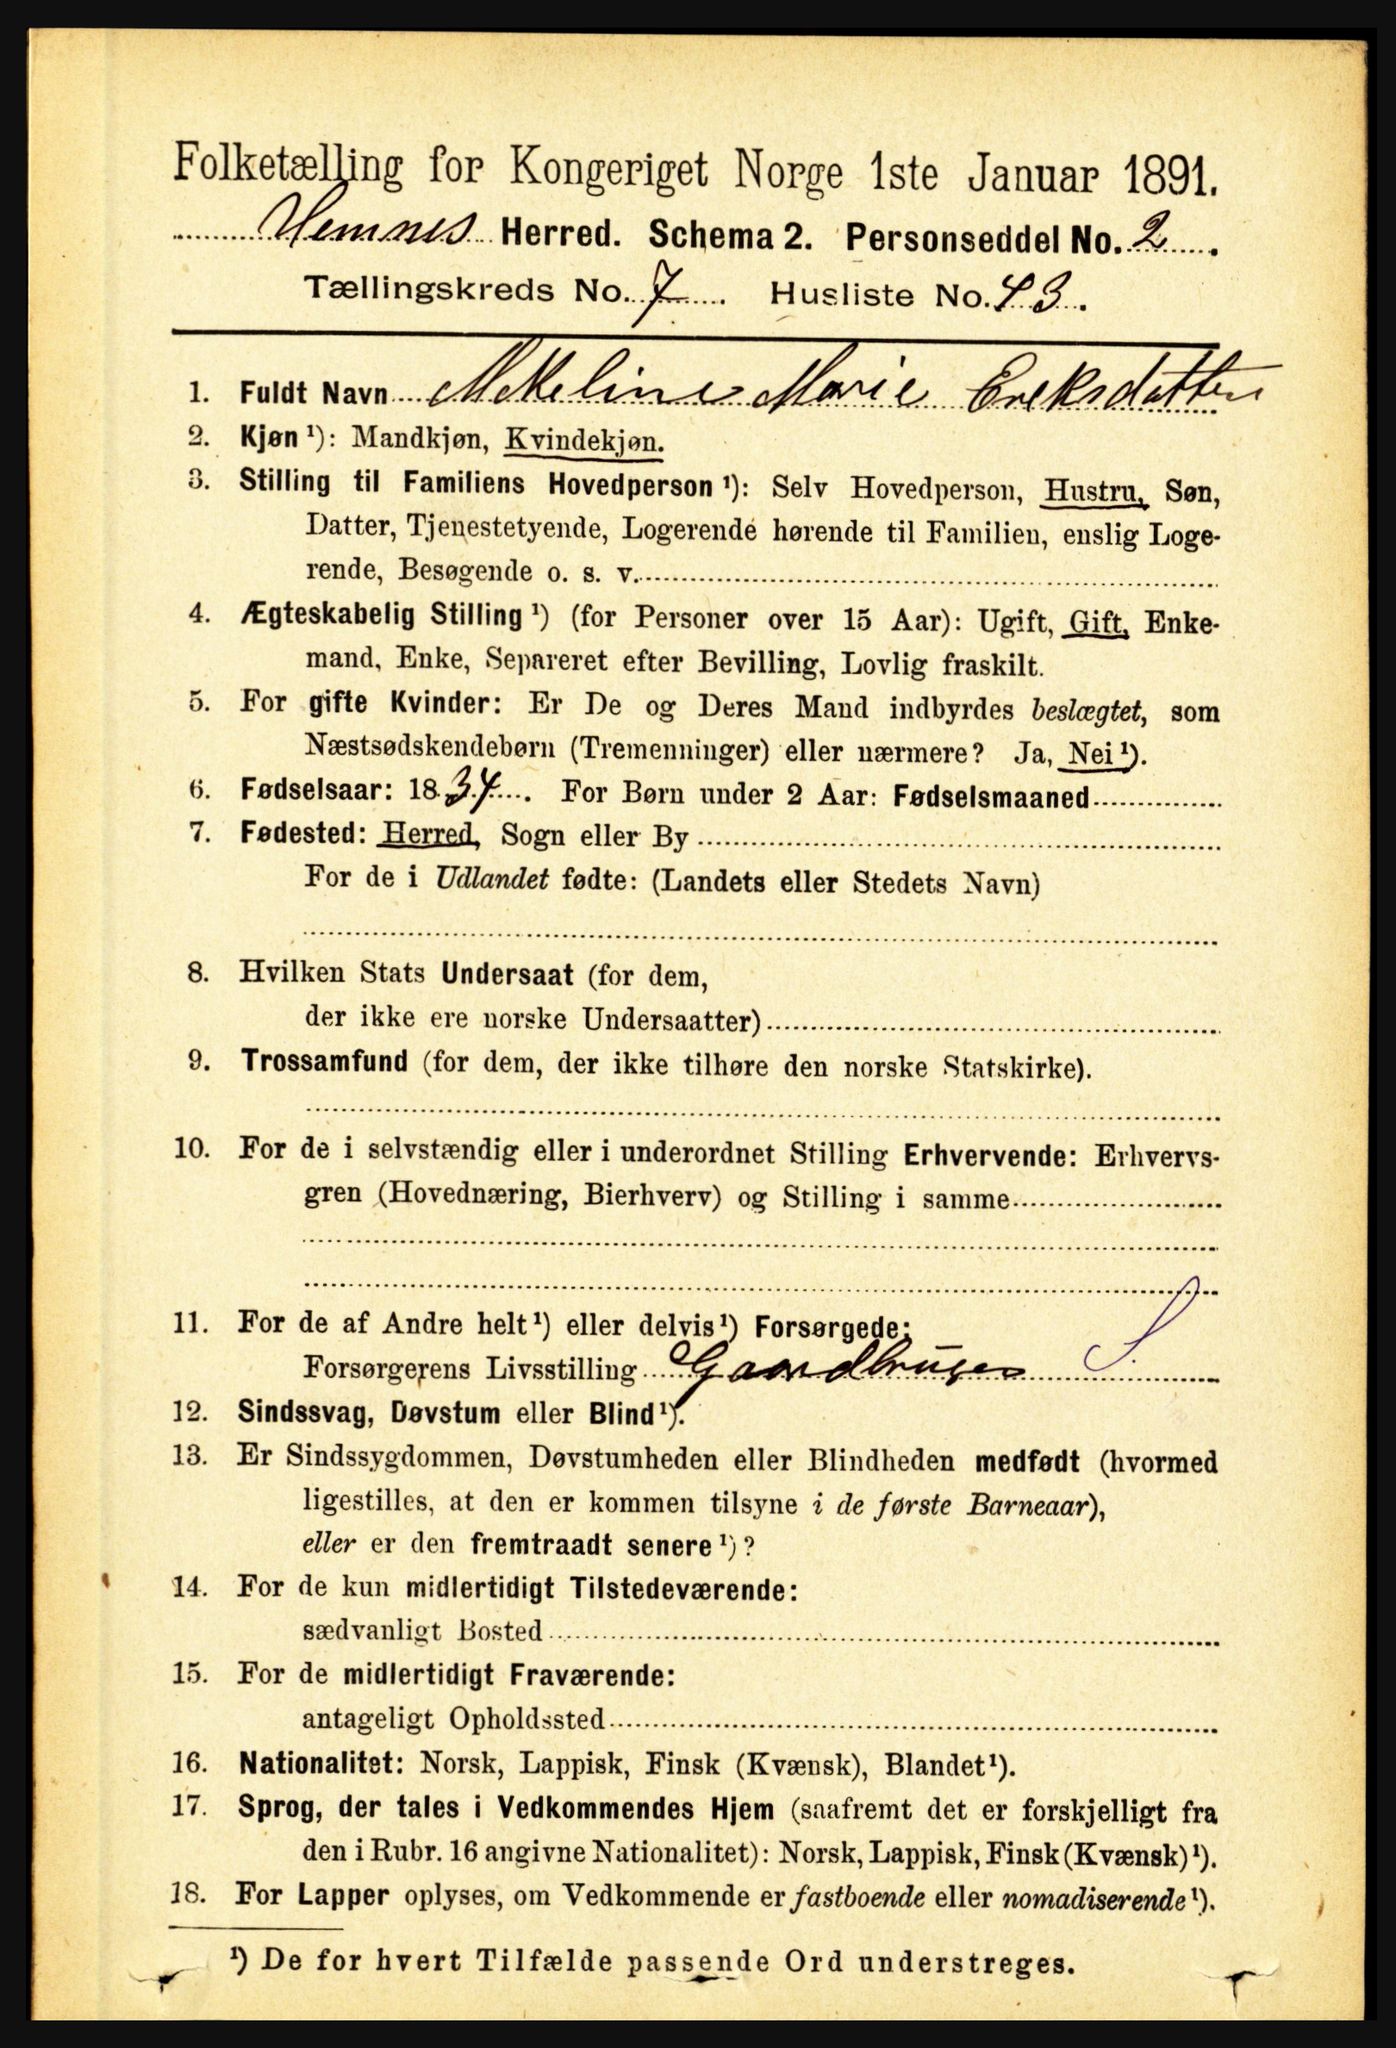 Folketælling for Kongeriget Norge 1ste Januar 1891.
Hemnes Herred. Schema 2. Personseddel No. 2.
Tællingskreds No. 7. Husliste No. 43.
1. Fuldt Navn Marie Eriksdatter
2. Kjøn ¹): Mandkjøn, Kvindekjøn.
3. Stilling til Familiens Hovedperson ¹): Selv Hovedperson, Hustru, Søn,
Datter, Tjenestetyende, Logerende hørende til Familien, enslig Loge-
rende, Besøgende o. s. v.
4. Ægteskabelig Stilling ¹) (for Personer over 15 Aar): Ugift, Gift, Enke-
mand, Enke, Separeret efter Bevilling, Lovlig fraskilt.
5. For gifte Kvinder: Er De og Deres Mand indbyrdes beslægtet, som
Næstsødskendebørn (Tremenninger) eller nærmere? Ja, Nei ¹).
6. Fødselsaar: 1834. For Børn under 2 Aar: Fødselsmaaned
7. Fødested: Herred, Sogn eller By
For de i Udlandet fødte: (Landets eller Stedets Navn)
8. Hvilken Stats Undersaat (for dem,
der ikke ere norske Undersaatter)
9. Trossamfund (for dem, der ikke tilhøre den norske Statskirke).
10. For de i selvstændig eller i underordnet Stilling Erhvervende: Erhvervs-
gren (Hovednæring, Bierhverv) og Stilling i samme
11. For de af Andre helt ¹) eller delvis ¹) Forsørgede:
Forsørgerens Livsstilling Gaardbruger S.
12. Sindssvag, Døvstum eller Blind ¹).
13. Er Sindssygdommen, Døvstumheden eller Blindheden medfødt (hvormed
ligestilles, at den er kommen tilsyne i de første Barneaar),
eller er den fremtraadt senere ¹)?
14. For de kun midlertidigt Tilstedeværende:
sædvanligt Bosted
15. For de midlertidigt Fraværende:
antageligt Opholdssted
16. Nationalitet: Norsk, Lappisk, Finsk (Kvænsk), Blandet ¹).
17. Sprog, der tales i Vedkommendes Hjem (saafremt det er forskjelligt fra
den i Rubr. 16 angivne Nationalitet): Norsk, Lappisk, Finsk (Kvænsk) ¹).
18. For Lapper oplyses, om Vedkommende er fastboende eller nomadiserende ¹).
¹) De for hvert Tilfælde passende Ord understreges.